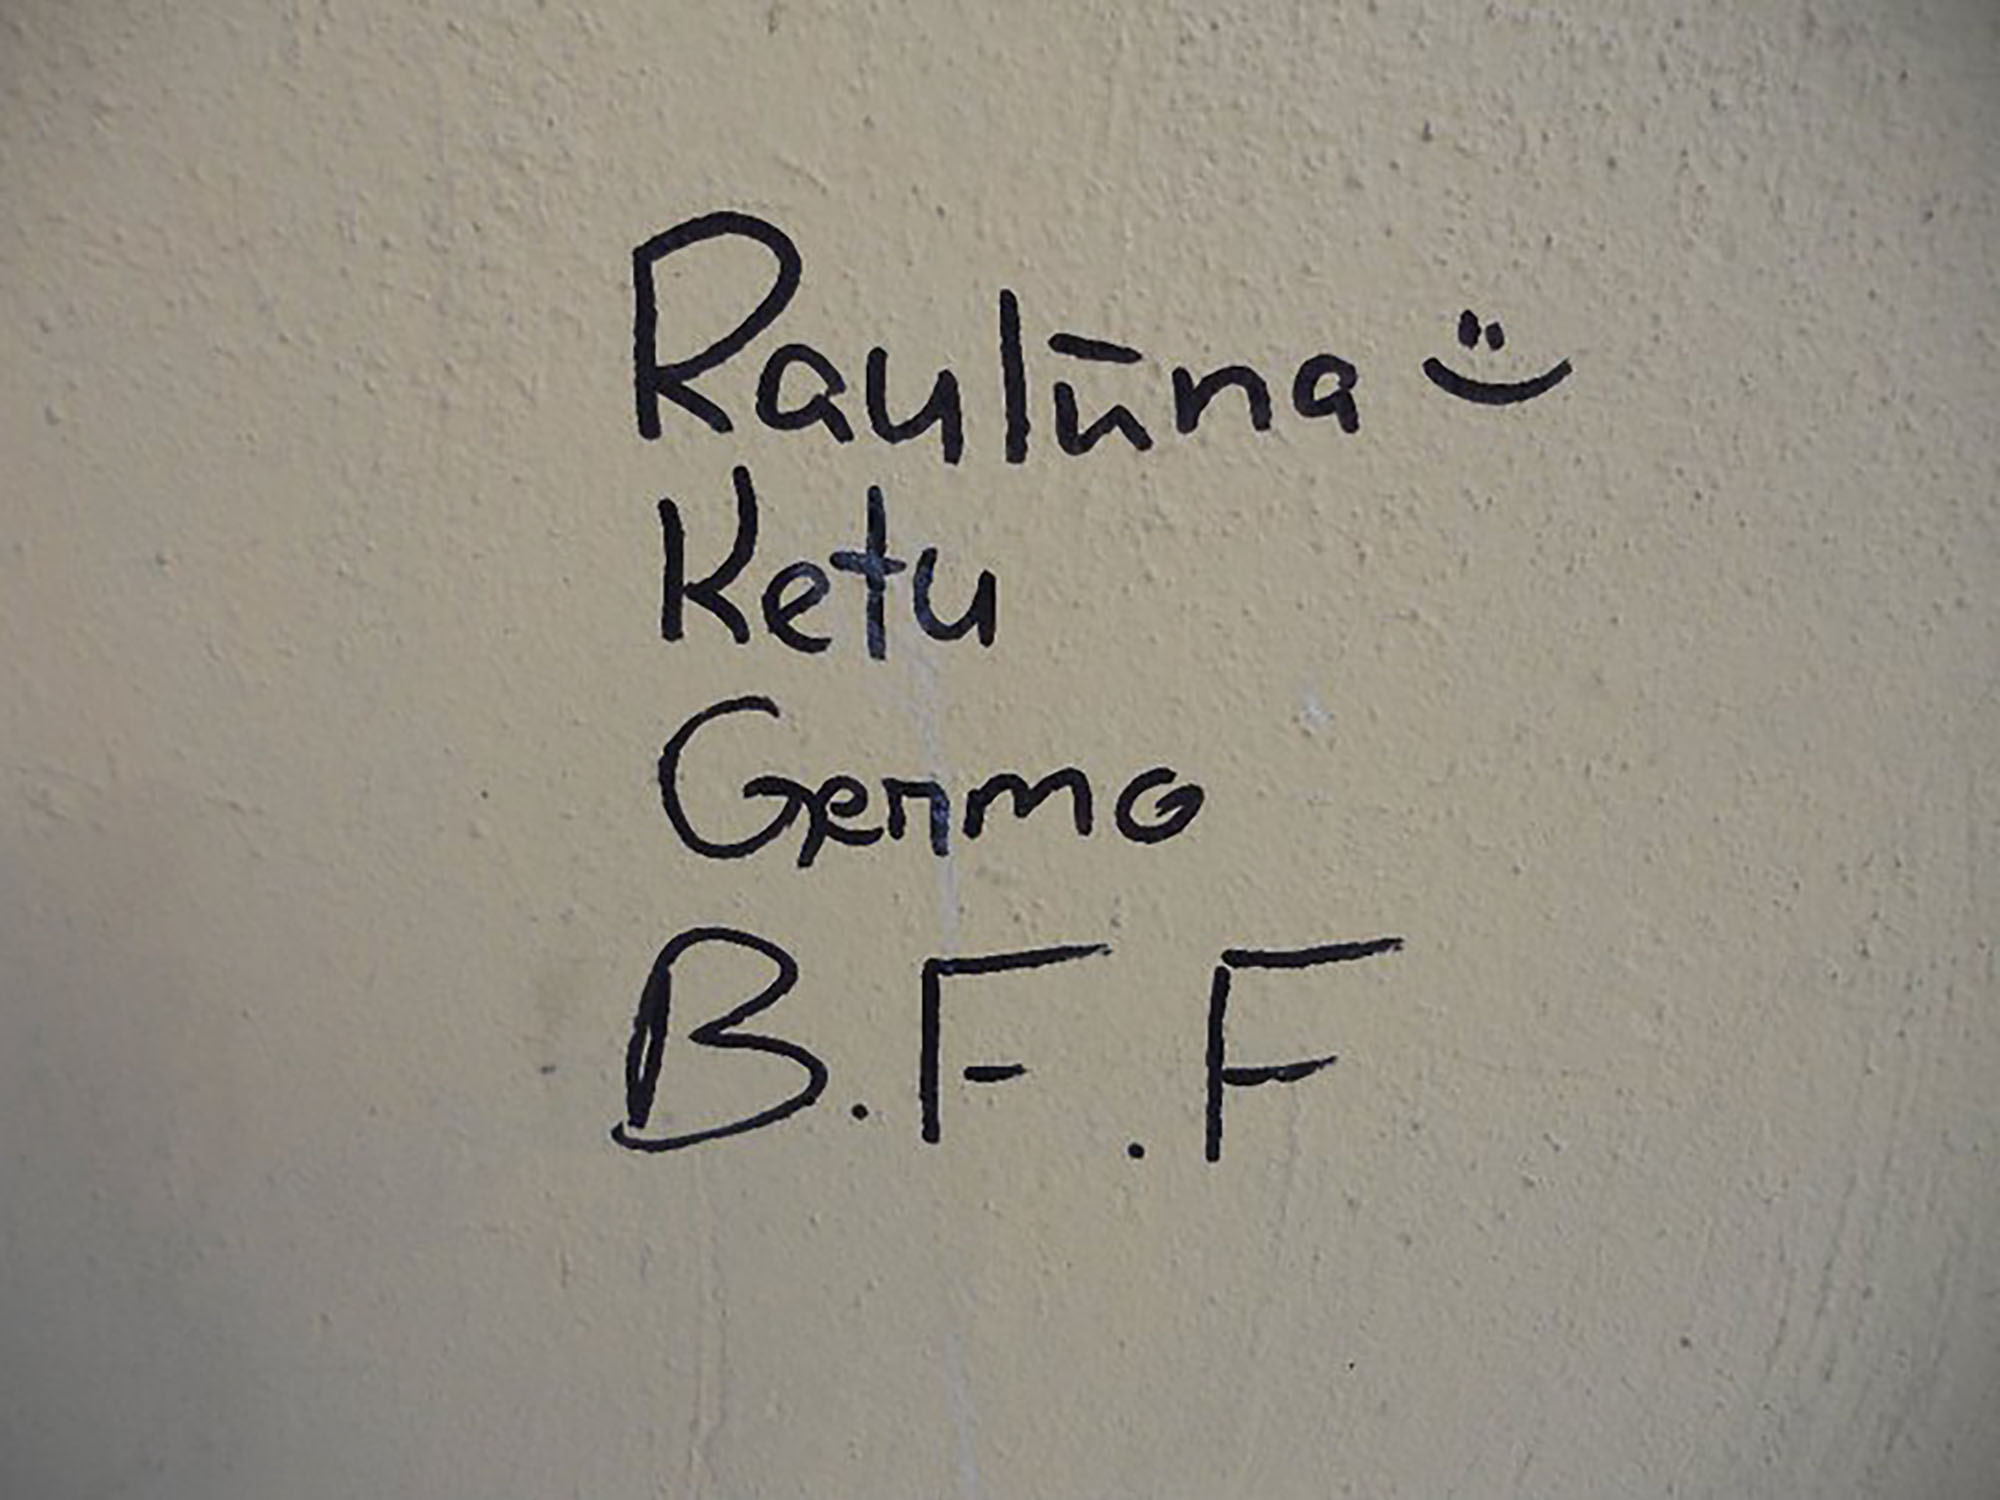 Raulūna
Ketu
Germo
B.F.F